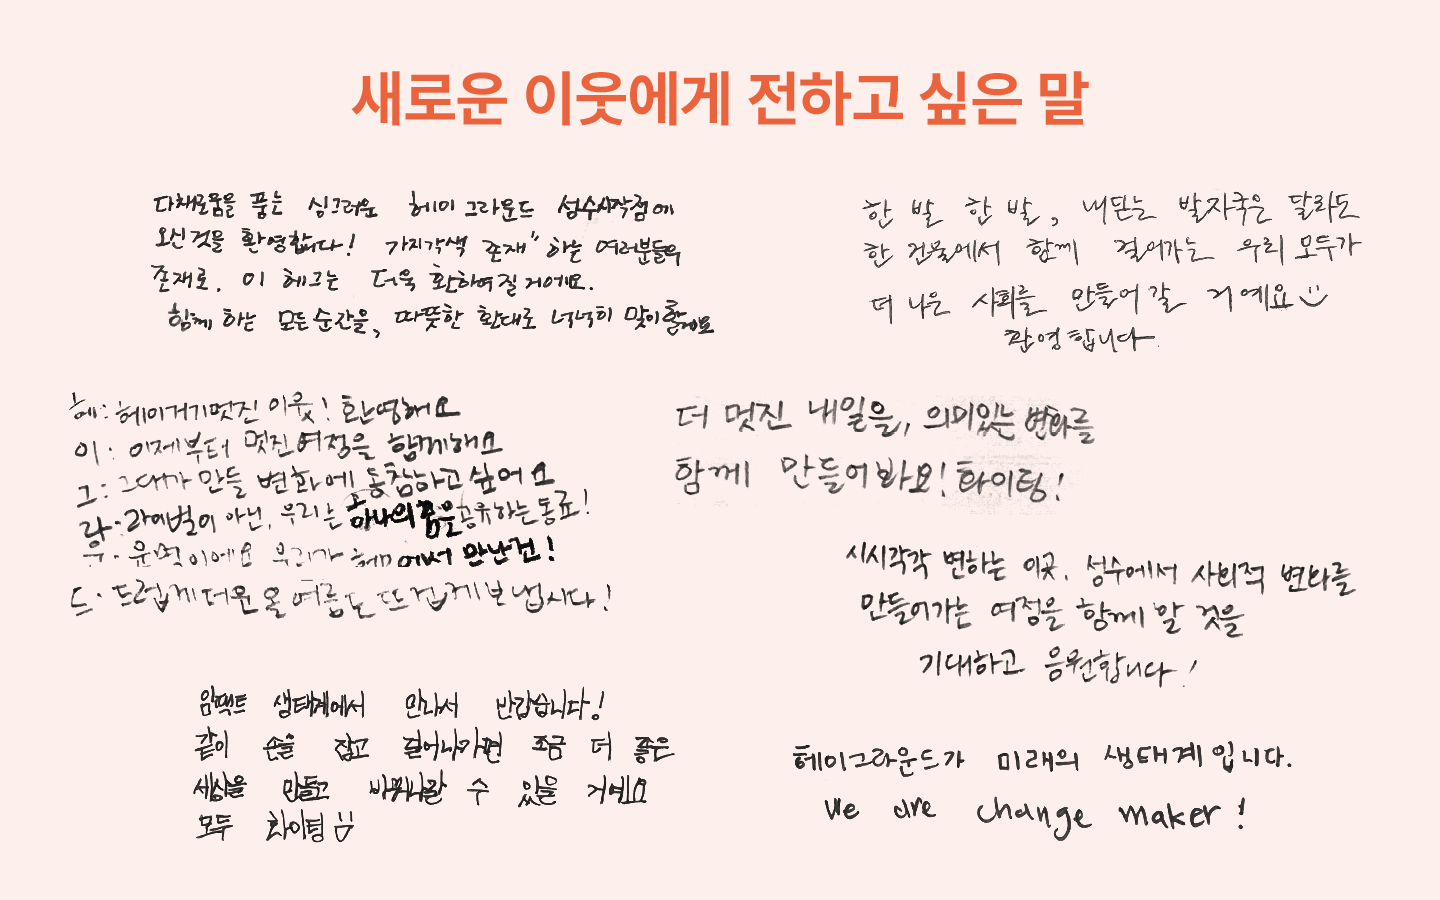 새로운 이웃에게 전하고 싶은 말
다채로움을 품는 싱그러운 헤이그라운드 성수시작점에
오신 것을 환영합니다! 가지각색 "존재" 하는 여러분들의
존재로, 이 헤그는 더욱 환하여질 거에요.
함께 하는 모든 순간을, 따뜻한 환대로 넉넉히 맞이할게요
한 발 한 발, 내딛는 발자국은 달라도
한 건물에서 함께 걸어가는 우리 모두가
더 나은 사회를 만들어 갈 거예요
환영합니다.
헤: 헤이거기멋진 이웃! 환영해요
이: 이제부터 멋진여정을 함께해요
그: 그대가 만들 변화에 동참하고 싶어요
라: 라이벌이 아닌, 우리는 하나의 꿈을 공유하는 동료!
우: 운명이에요 우리가 헤그에서 만난건!
드: 뜨겁게 더운 올 여름도 뜨겁게 보냅시다!
더 멋진 내일을, 의미있는 변화를
함께 만들어봐요! 화이팅!
시시각각 변하는 이곳, 성수에서 사회적 변화를
만들어가는 여정을 함께 할 것을
기대하고 응원합니다!
임팩트 생태계에서 만나서 반갑습니다!
같이 손을 잡고 걸어나가면 조금 더 좋은
세상을 만들고 바꿔나갈 수 있을 거예요
모두 화이팅
헤이그라운드가 미래의 생태계입니다.
We are change maker!